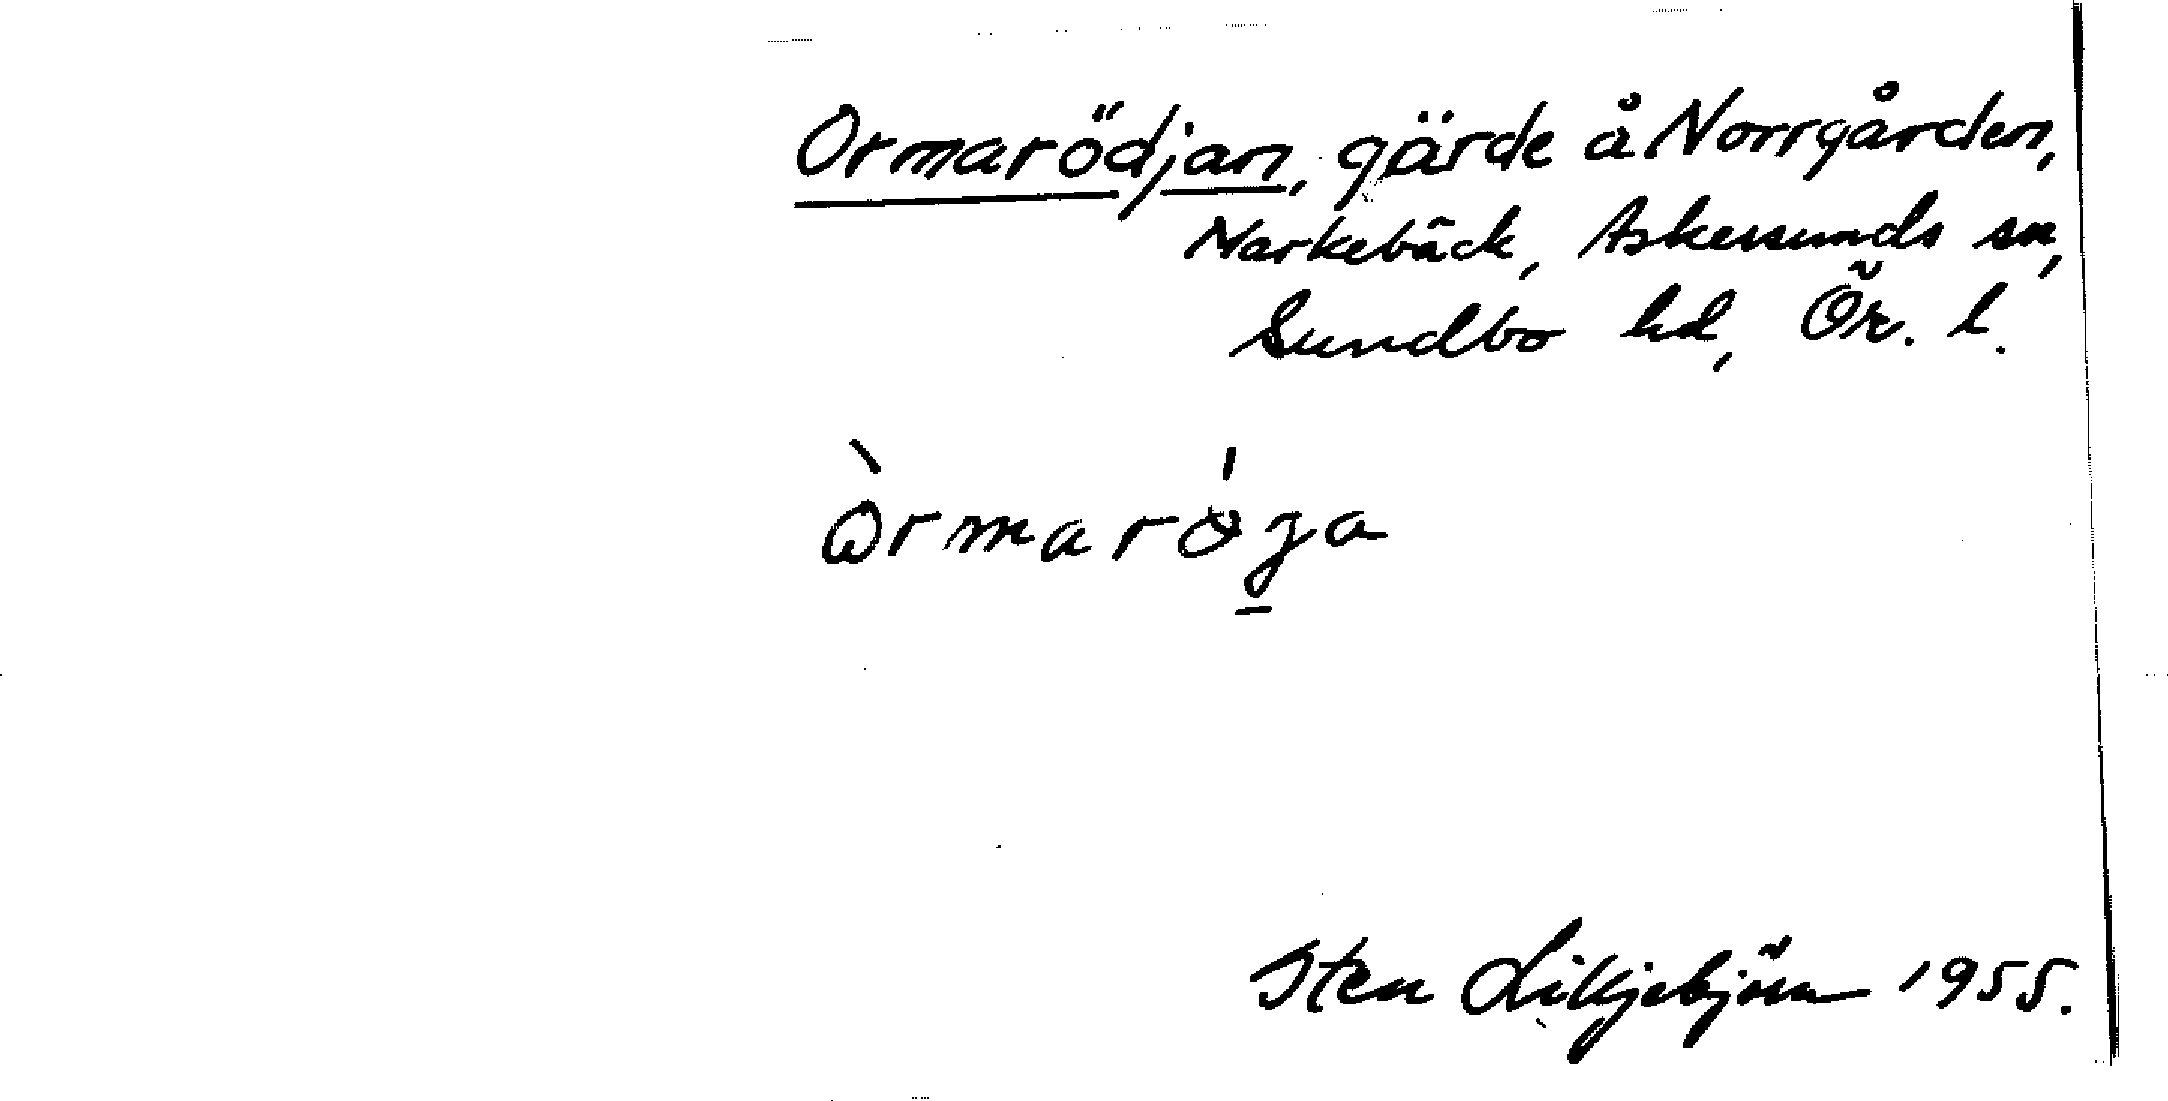 Ormarödjan, gärde å Norrgården,
Narkebäck, Askersunds sn,
Sundbo hd, Ör. l.
Òrmaröja
Sten Lilljebjörn 1955.